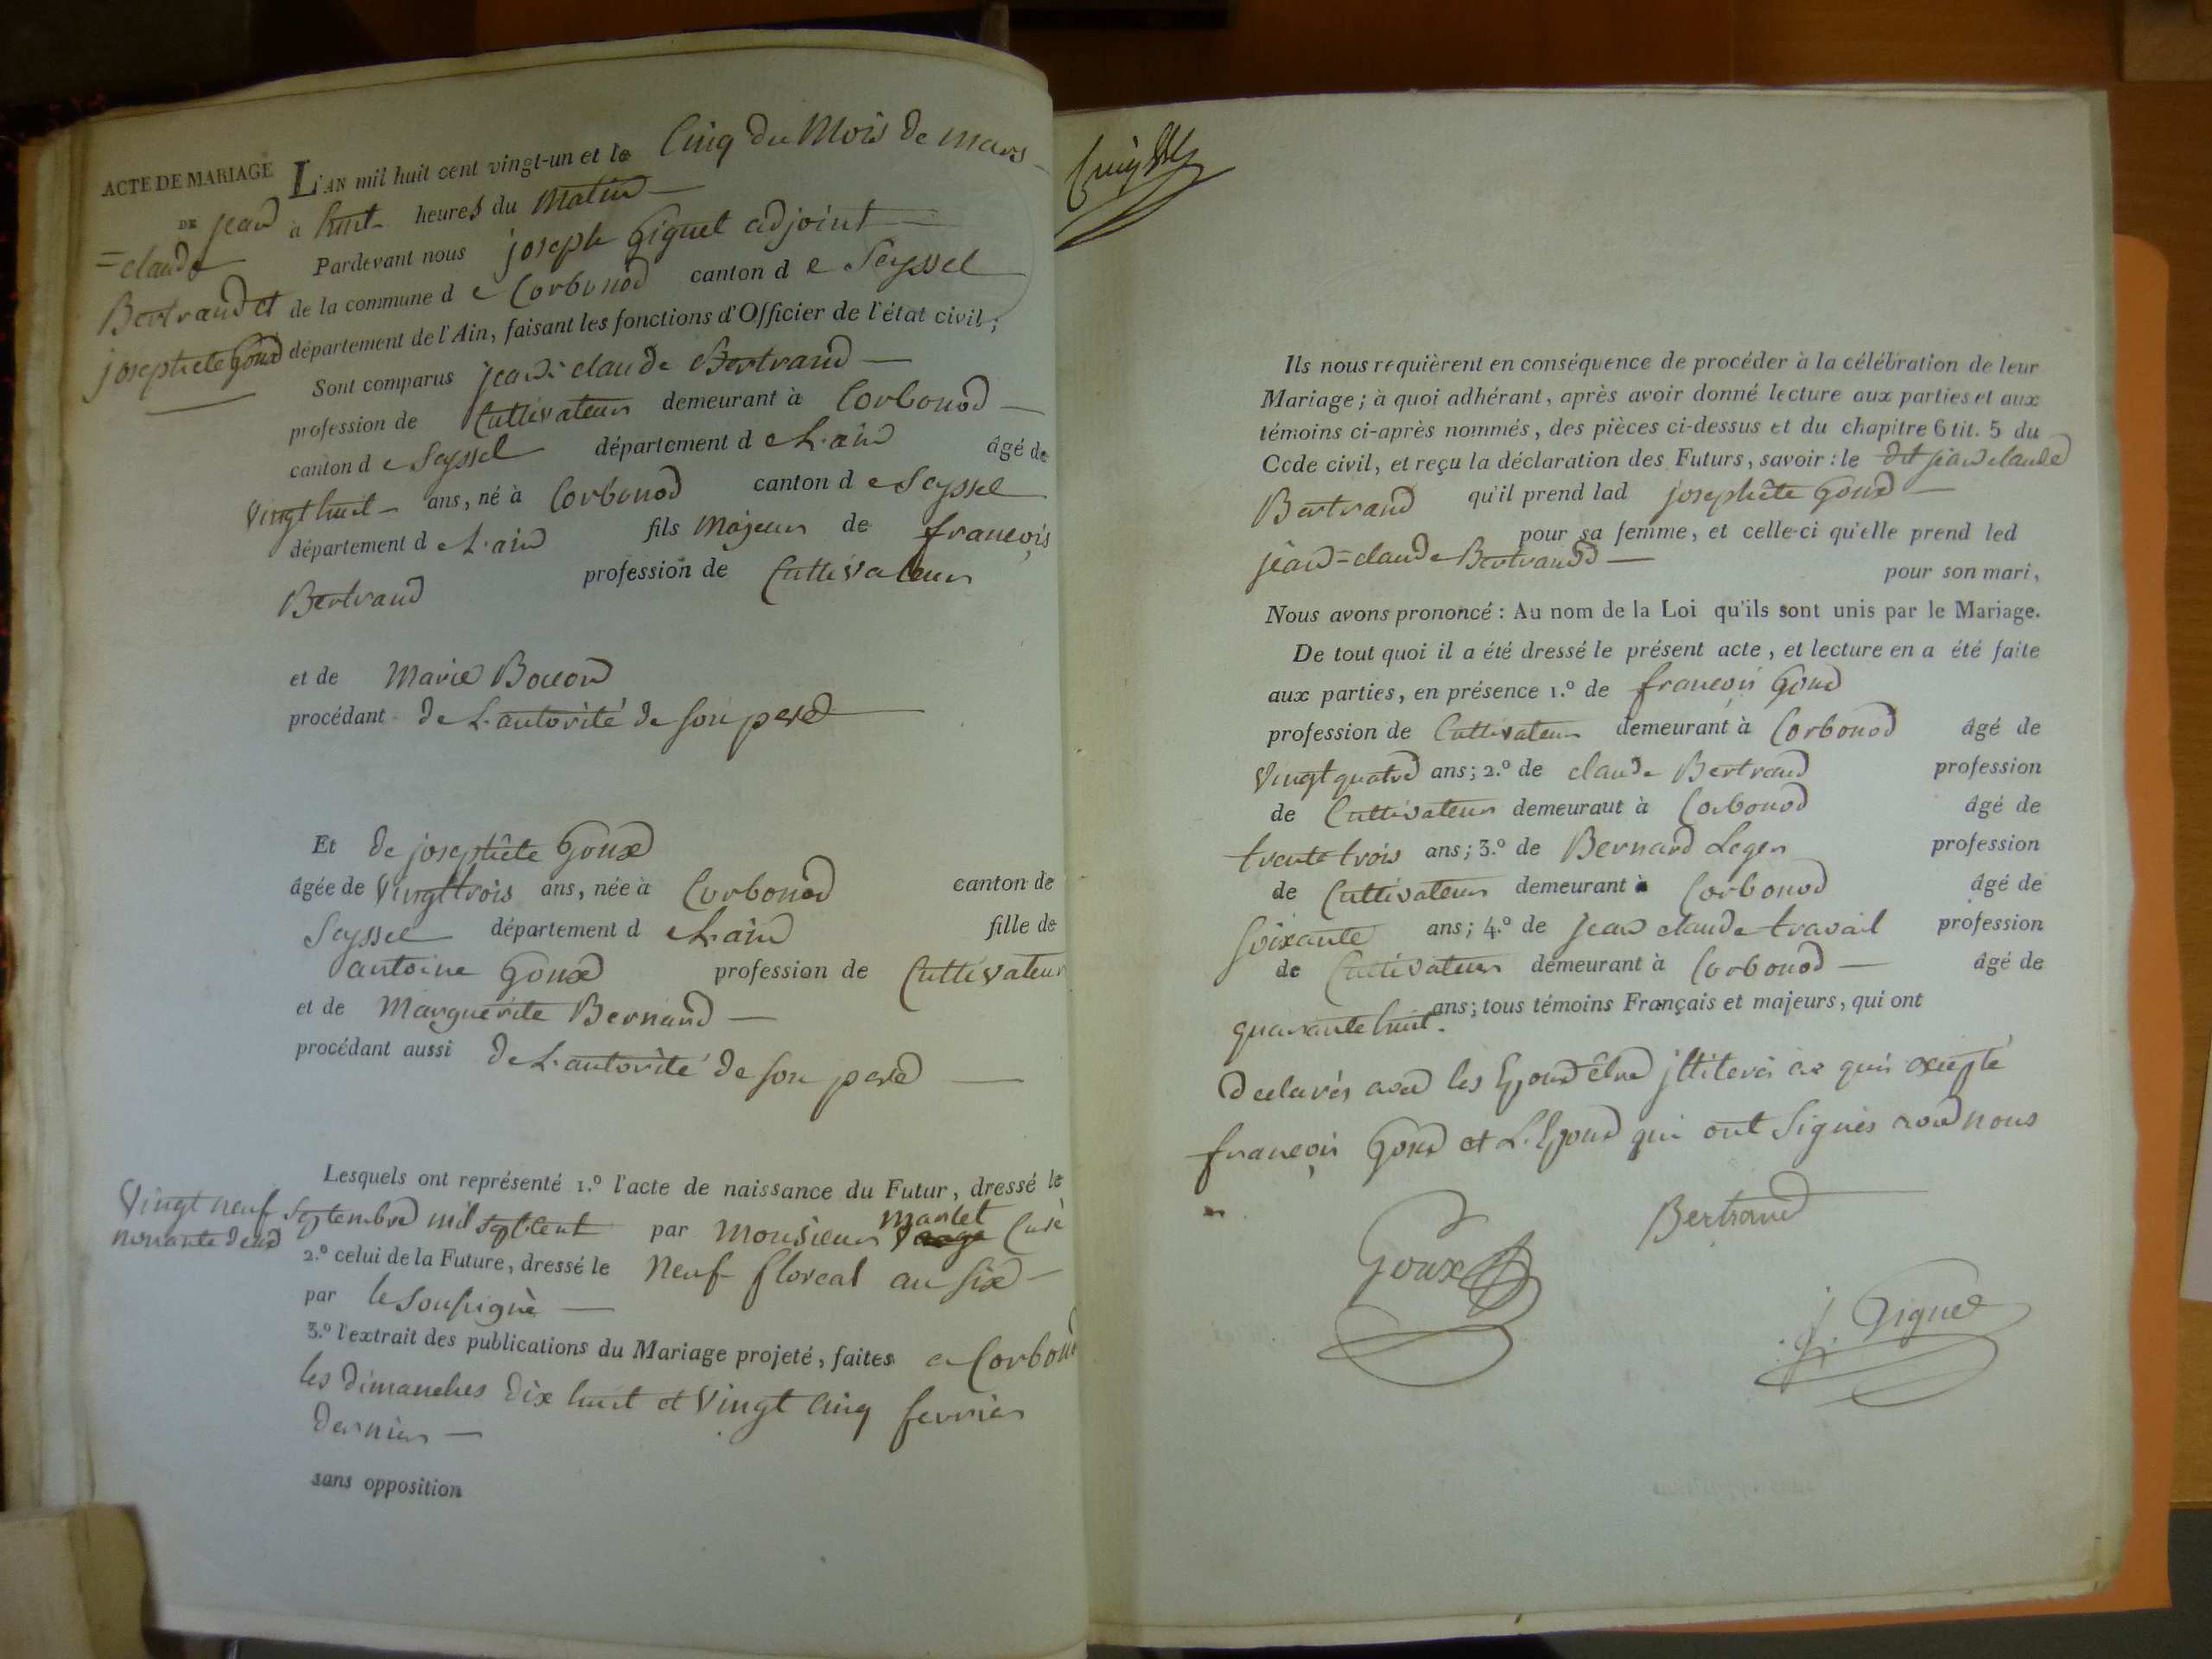 ACTE DE MARIAGE
DE jean
=claude
Bertrand et
josephete Goux
L'AN mil huit cent vingt-un et le Cinq du Mois de mars
à huit heures du Matin
Pardevant nous joseph Giguet adjoint
de la commune d e Corbonod canton d e Seyssel
département de l'Ain, faisant les fonctions d'Officier de l'état civil;
Sont comparus jean-claude Bertrand
profession de Cultivateur demeurant à Corbonod
canton d e Seyssel département d e L'ain âgé de
Vingt huit ans, né à Corbonod canton d e Seyssel
département d e L'ain fils Majeur de françois
Bertrand profession de Cultivateur
et de Marie Bovon
procédant de L'autorité de son pere
Et de josephête Goux
âgée de Vingt trois ans, née à Corbonod canton de
Seyssel département d e L'ain fille de
antoine Goux profession de Cultivateur
et de Marguerite Bernard
procédant aussi de L'autorité de son pere
Lesquels ont représenté 1.º l'acte de naissance du Futur, dressé le
Vingt neuf Septembre mil Sept Cent par Monsieur Marlet Curé
nonante deux
2.º celui de la Future, dressé le Neuf floreal an Six
par le Soussigné
3.º l'extrait des publications du Mariage projeté, faites a Corbonod
les dimanches dix huit et Vingt Cinq fevrier
dernier
sans opposition
Ils nous requièrent en conséquence de procéder à la célébration de leur
Mariage; à quoi adhérant, après avoir donné lecture aux parties et aux
témoins ci-après nommés, des pièces ci-dessus et du chapitre 6 tit. 5 du
Code civil, et reçu la déclaration des Futurs, savoir: le dit jean claude
Bertrand qu'il prend lad josephête Goux
pour sa femme, et celle-ci qu'elle prend led
jean=claude Bertrand
pour son mari,
Nous avons prononcé: Au nom de la Loi qu'ils sont unis par le Mariage.
De tout quoi il a été dressé le présent acte, et lecture en a été faite
aux parties, en présence 1.º de françois Goux
profession de Cultivateur demeurant à Corbonod âgé de
Vingt quatre ans; 2.º de claude Bertrand profession
de Cultivateur demeuraut à Corbonod âgé de
trente trois ans; 3.º de Bernard Leger profession
de Cultivateur demeurant à Corbonod âgé de
Soixante ans; 4.º de jean claude travail profession
de Cultivateur demeurant à Corbonod âgé de
quarante huit ans; tous témoins Français et majeurs, qui ont
declarés avec les Epoux être jlliterés ce quis excepté
françois Goux et L'Epoux qui ont Signés avec nous
Bertrand
Goux
J. Giguet